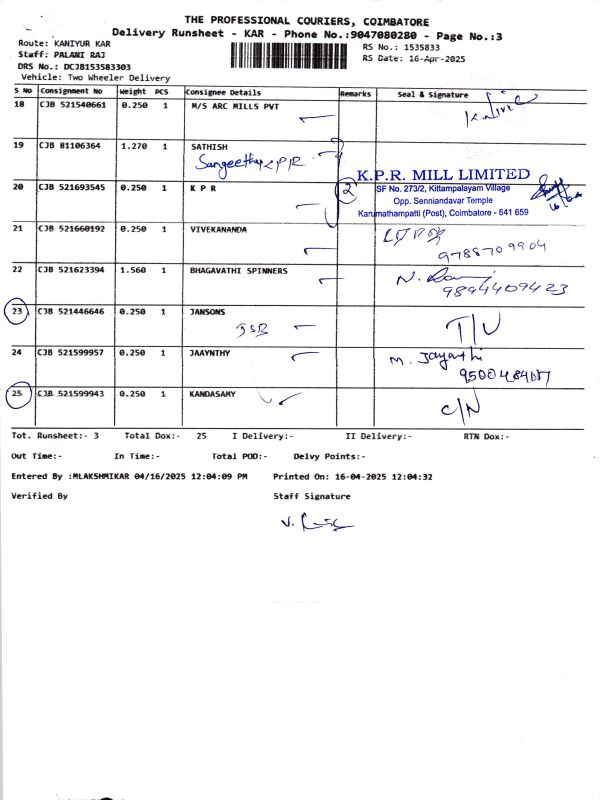 THE PROFESSIONAL COURIERS, COIMBATORE
Delivery Runsheet - KAR - Phone No.:9047080280 - Page No.:3
Route: KANIYUR KAR
Staff: PALANI RAJ
DRS No.: DCJB153583303
Vehicle: Two Wheeler Delivery
RS No.: 1535833
RS Date: 16-Apr-2025
S No Consignment No Weight PCS Consignee Details Remarks Seal & Signature
18 CJB 521540661 0.250 1 M/S ARC MILLS PVT
19 CJB 81106364 1.270 1 SATHISH
Sangeetha K.P.R
20 CJB 521693545 0.250 1 K P R
2
K.P.R. MILL LIMITED
SF No. 273/2, Kittampalayam Village
Opp. Senniandavar Temple
Karumathampatti (Post), Coimbatore - 641 659
21 CJB 521660192 0.250 1 VIVEKANANDA
9788709904
22 CJB 521623394 1.560 1 BHAGAVATHI SPINNERS
9894409423
23 CJB 521446646 0.250 1 JANSONS T/U
24 CJB 521599957 0.250 1 JAAYNTHY M. Jayanthi
25 CJB 521599943 0.250 1 KANDASAMY C/N
Tot. Runsheet:- 3 Total Dox:- 25 I Delivery:- II Delivery:- RTN Dox:-
Out Time:- In Time:- Total POD:- Delvy Points:-
Entered By :MLAKSHMIKAR 04/16/2025 12:04:09 PM Printed On: 16-04-2025 12:04:32
Verified By Staff Signature